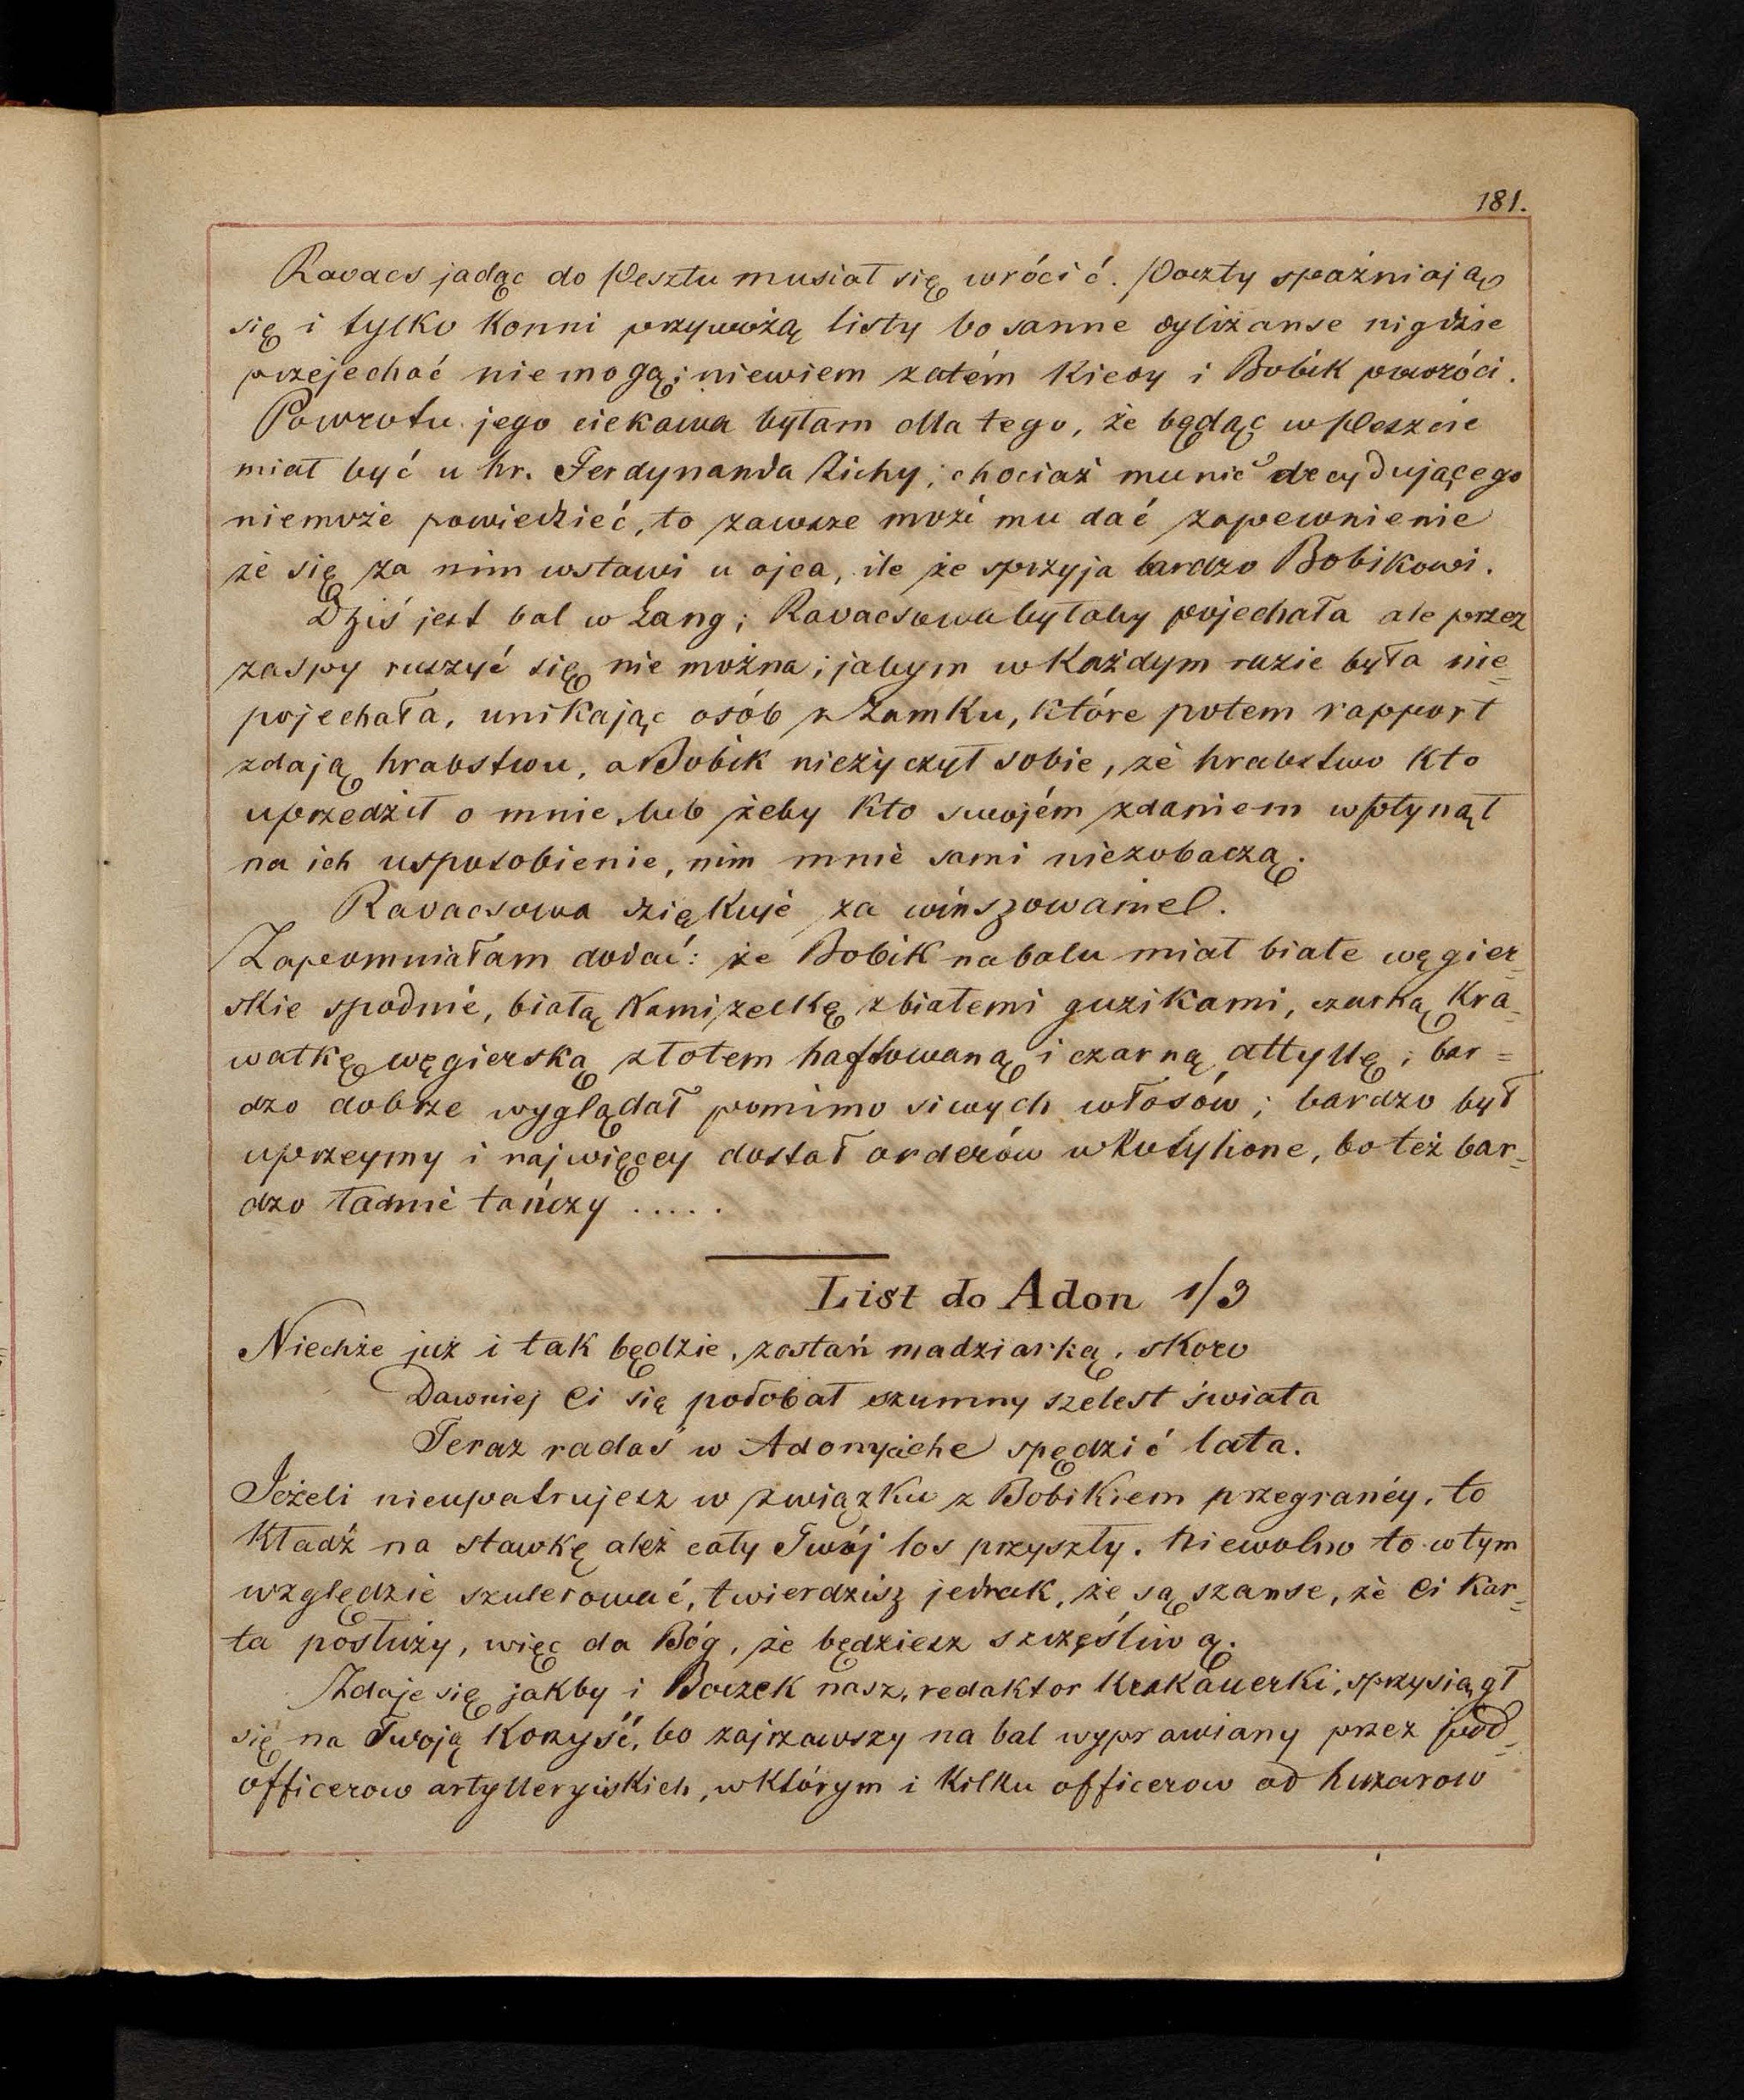 181.
Kovacs jadąc do Pesztu musiał się wrócić. Poczty spaźniają
się i tylko konni przywożą listy bo sanne dyliżanse nigdzie
przejechać niemogą; niewiem zatém kiedy i Bobik powróci.
Powrotu jego ciekawa byłam dla tego, że będąc w Peszcie
miał być u hr. Ferdynanda Zichy; chociaż mu nic decydującego
niemoże powiedzieć, to zawsze może mu dać zapewnienie
że się za nim wstawi u ojca, ile że sprzyja bardzo Bobikowi.
Dziś jest bal w Lang; Kovacsowa byłaby pojechała ale przez
zaspy ruszyć się nie można; jabym w każdym razie była nie=
pojechała, unikając osób z Zamku, które potem rapport
zdają hrabstwu, a Bobik nieżyczył sobie, że hrabstwo kto
uprzedził o mnie, lub żeby kto swojém zdaniem wpłynął
na ich usposobienie, nim mnie sami niezobaczą.
Kovacsowa dziękuje za winszowanie.
Zapomniałam dodać: że Bobik na balu miał białe węgier=
skie spodnie, białą kamizelkę z białemi guzikami, czarną kra=
watkę węgierską złotem haftowaną i czarną attyllę; bar=
dzo dobrze wyglądał pomimo siwych włosów; bardzo był
uprzeymy i najwięcey dostał orderów w kotylione, bo też bar=
dzo ładnie tańczy .....
List do Adon 1/3
Niechże już i tak będzie, zostań madziarką, skoro
Dawniej Ci się podobał szumny szelest świata
Teraz radaś w Adonyiche spędzić lata.
Jeżeli nieupatrujesz w związku z Bobikiem przegranéy, to
kładź na stawkę ależ cały Twój los przyszły. Niewolno to w tym
względzie szulerować, twierdzisz jednak, że są szanse, że Ci kar=
ta posłuży, więc da Bóg, że będziesz szczęśliwą.
Zdaje się jakby i Boczek nasz, redaktor Krakauerki, sprzysiągł
się na Twoją korzyść, bo zajrzawszy na bal wyprawiany przez pod=
officerow artylleryiskich, w którym i kilku officerow od huzarow